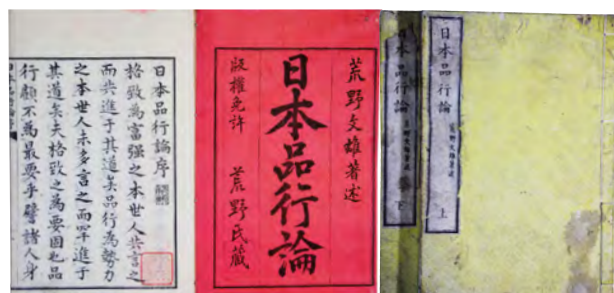 日本品行論序
格致為富强之本世人共言之
而共進于其道矣品行為勢力
之本世人未多言之而罕進于
其道矣夫格致之為要固也品
行顧不為最要乎譬諸人身
荒野文雄著述
日本品行論
版權免許 荒野氏藏
日本品行論 上
荒野文雄著述
日本品行論 下
荒野文雄著述